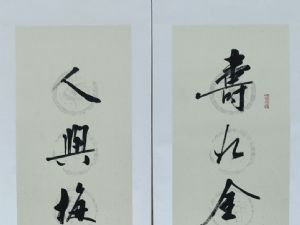 壽如金
人與梅